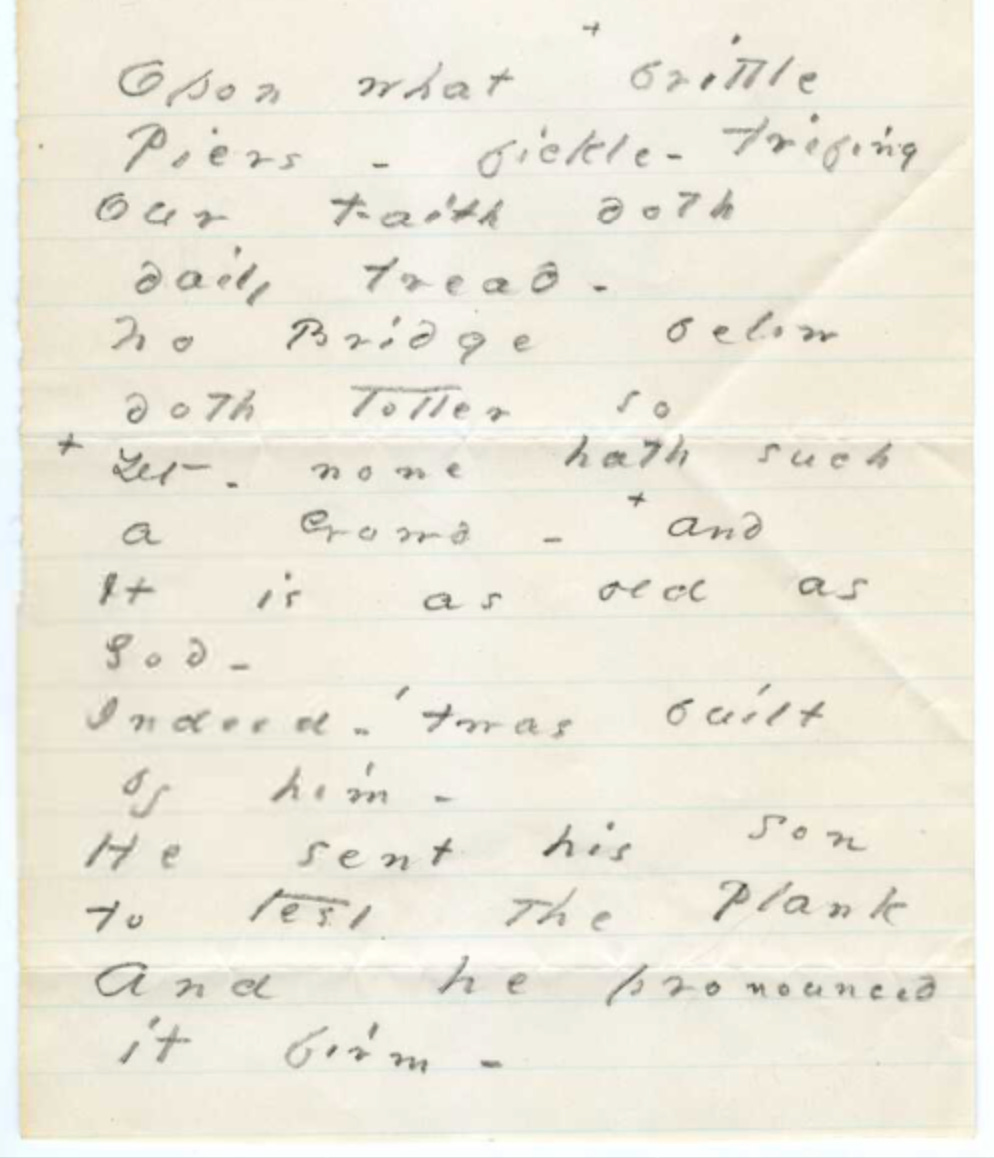 Opon what + brittle
Piers - fickle - trifling
Our Faith doth
daily tread -
No Bridge below
doth Totter so
+ Yet - none hath such
a Crowd - + and
It is as old as
God -
Indeed - 'twas built
by him -
He sent his son
to test the Plank
And he pronounced
it firm -